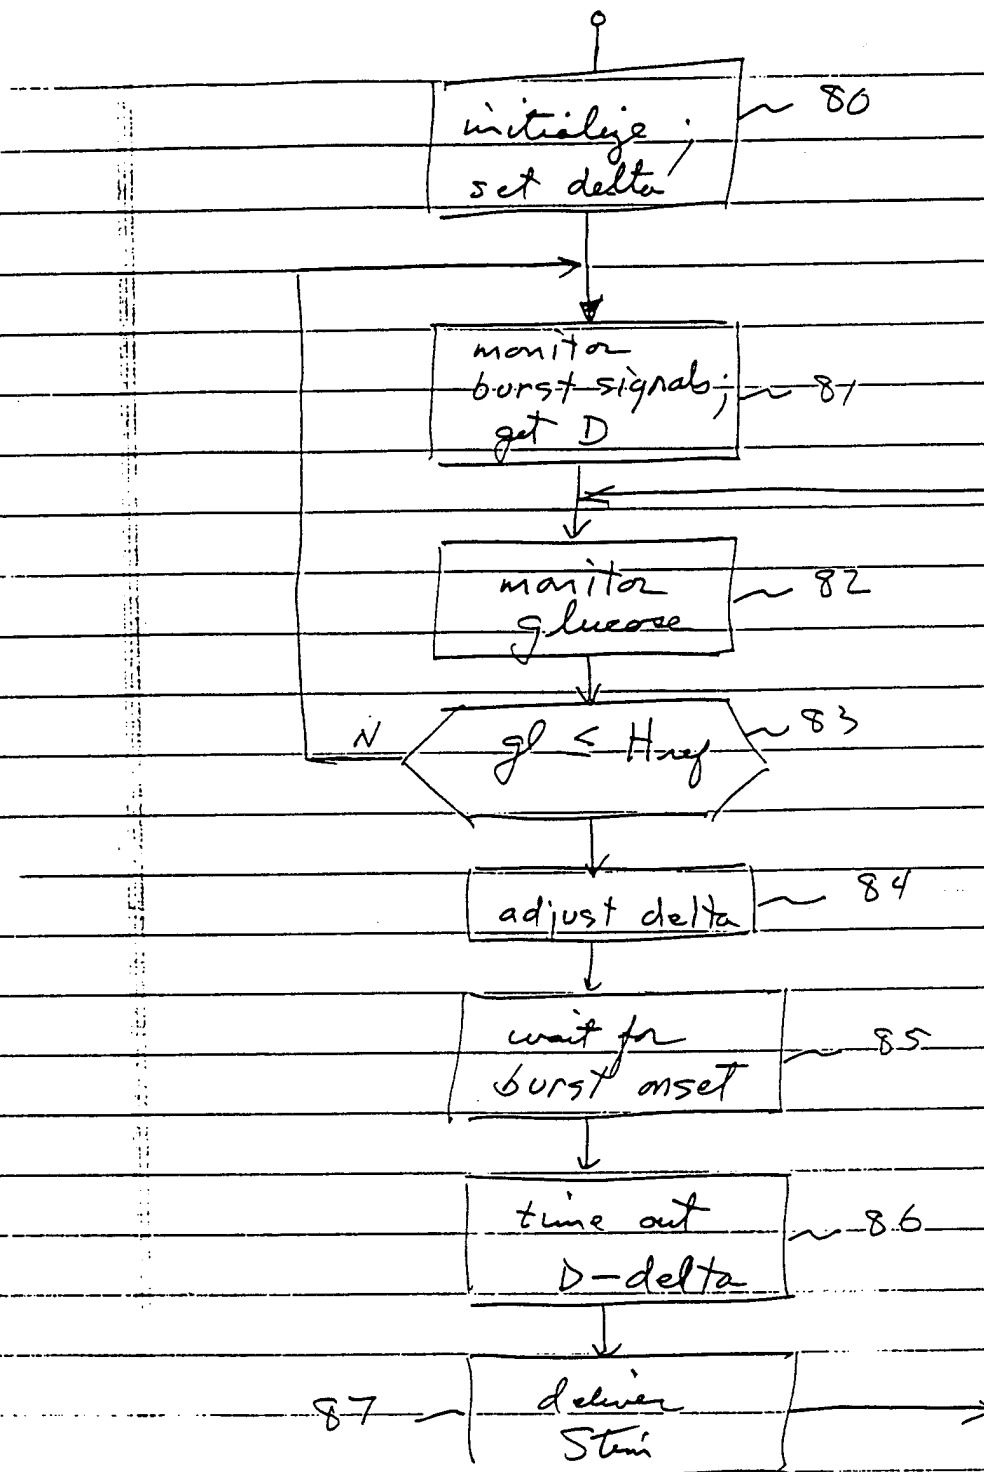 80
initialize;
set delta
monitor
burst signals;
get D
81
monitor
glucose
82
83
N
gl < Href
84
adjust delta
wait for
burst onset
85
time out
D-delta
86
87
deliver
Stim